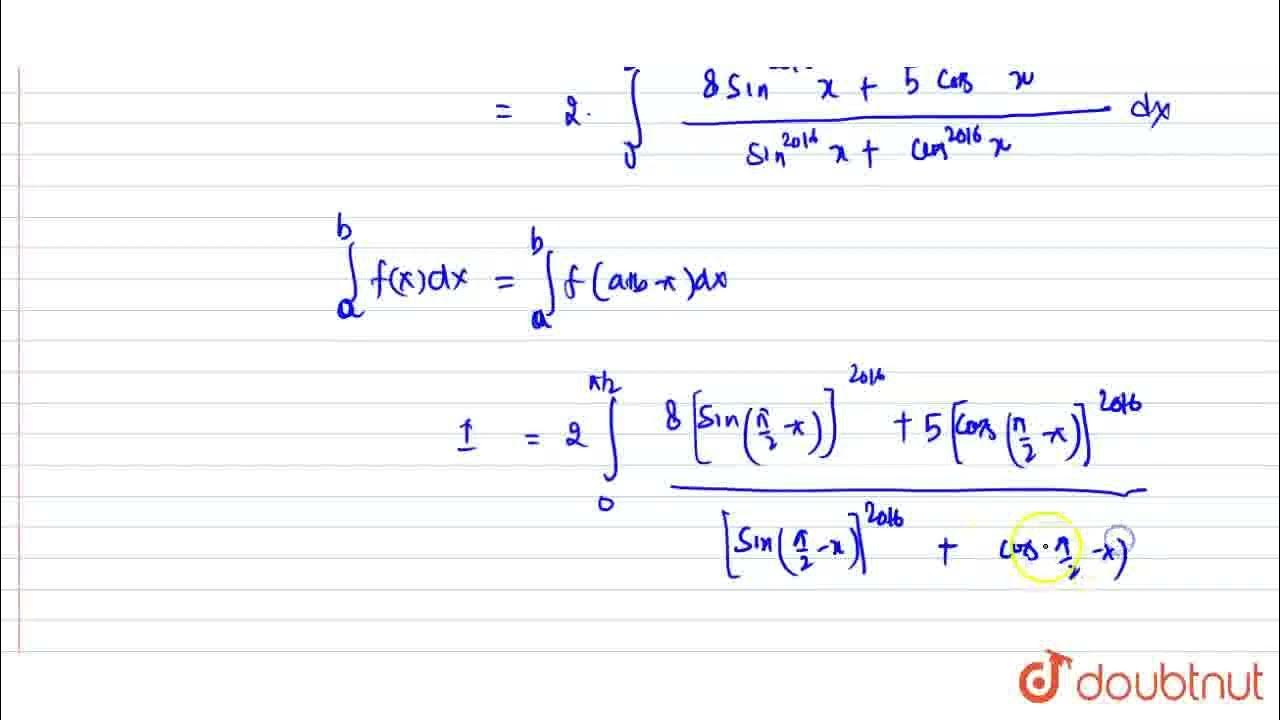 8 sin x + 5 cos x
= 2. ∫ dx
0 sin^2016 x + cos^2016 x
b b
∫ f(x)dx = ∫ f(a+b-x)dx
a a
π/2 8[sin(π/2 -x)]^2016 + 5[cos(π/2 -x)]^2016
I = 2 ∫
0 [sin(π/2 -x)]^2016 + cos π/2 -x)
doubtnut